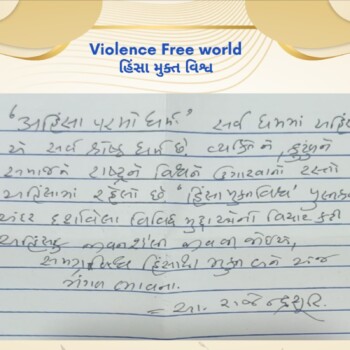 Violence Free world
હિંસા મુક્ત વિશ્વ
"અહિંસા પરમો ધર્મ" સર્વ ધર્મમાં અહિંસા
એ સર્વ શ્રેષ્ઠ ધર્મ છે. વ્યક્તિને, કુટુંબને
સમાજને રાષ્ટ્રને વિશ્વને ઉગારવાનો રસ્તો
અહિંસામાં રહેલો છે. 'હિંસા મુક્ત વિશ્વ' પુસ્તકના
અંદર દર્શાવેલા વિવિધ મુદ્દાઓનો વિચાર કરી
અહિંસક જીવનશૈલી જીવવી જોઇએ,
સમગ્ર વિશ્વ હિંસાથી મુક્ત બને એજ
મંગલ ભાવના.